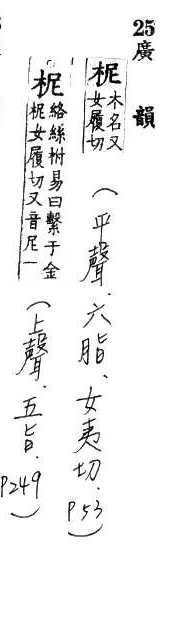 25廣韻
柅木名又女履切
(平聲、六脂、女夷切.P53)
柅絡絲柎易曰繫于金柅女履切又音尼一
(上聲.五旨.P249)